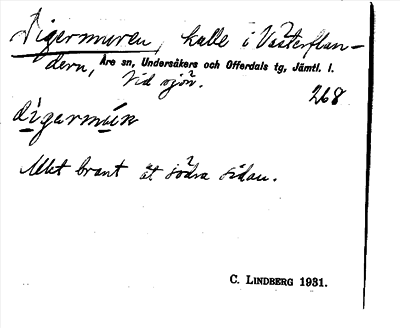 Digermuren, kulle i Västerflun-
dern, Åre sn, Undersåkers och Offerdals tg, Jämtl. l.
Vid sjön.
268
digarmún
Allt brant åt södra sidan.
C. LINDBERG 1931.